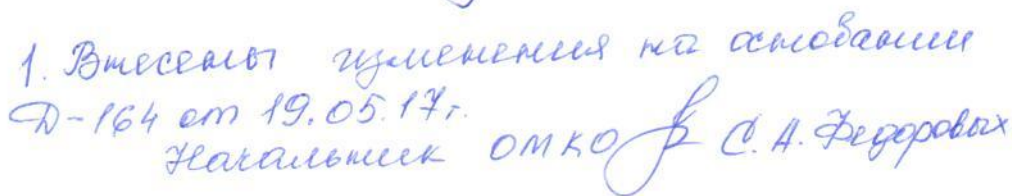 1. Внесены изменения на основании
Д-164 от 19.05.17г.
Начальник ОМКО С.А. Федоровых